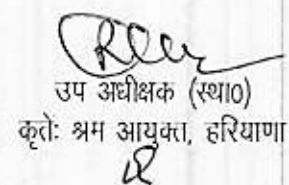 उप अधीक्षक (स्था0)
कृतेः श्रम आयुक्त, हरियाणा